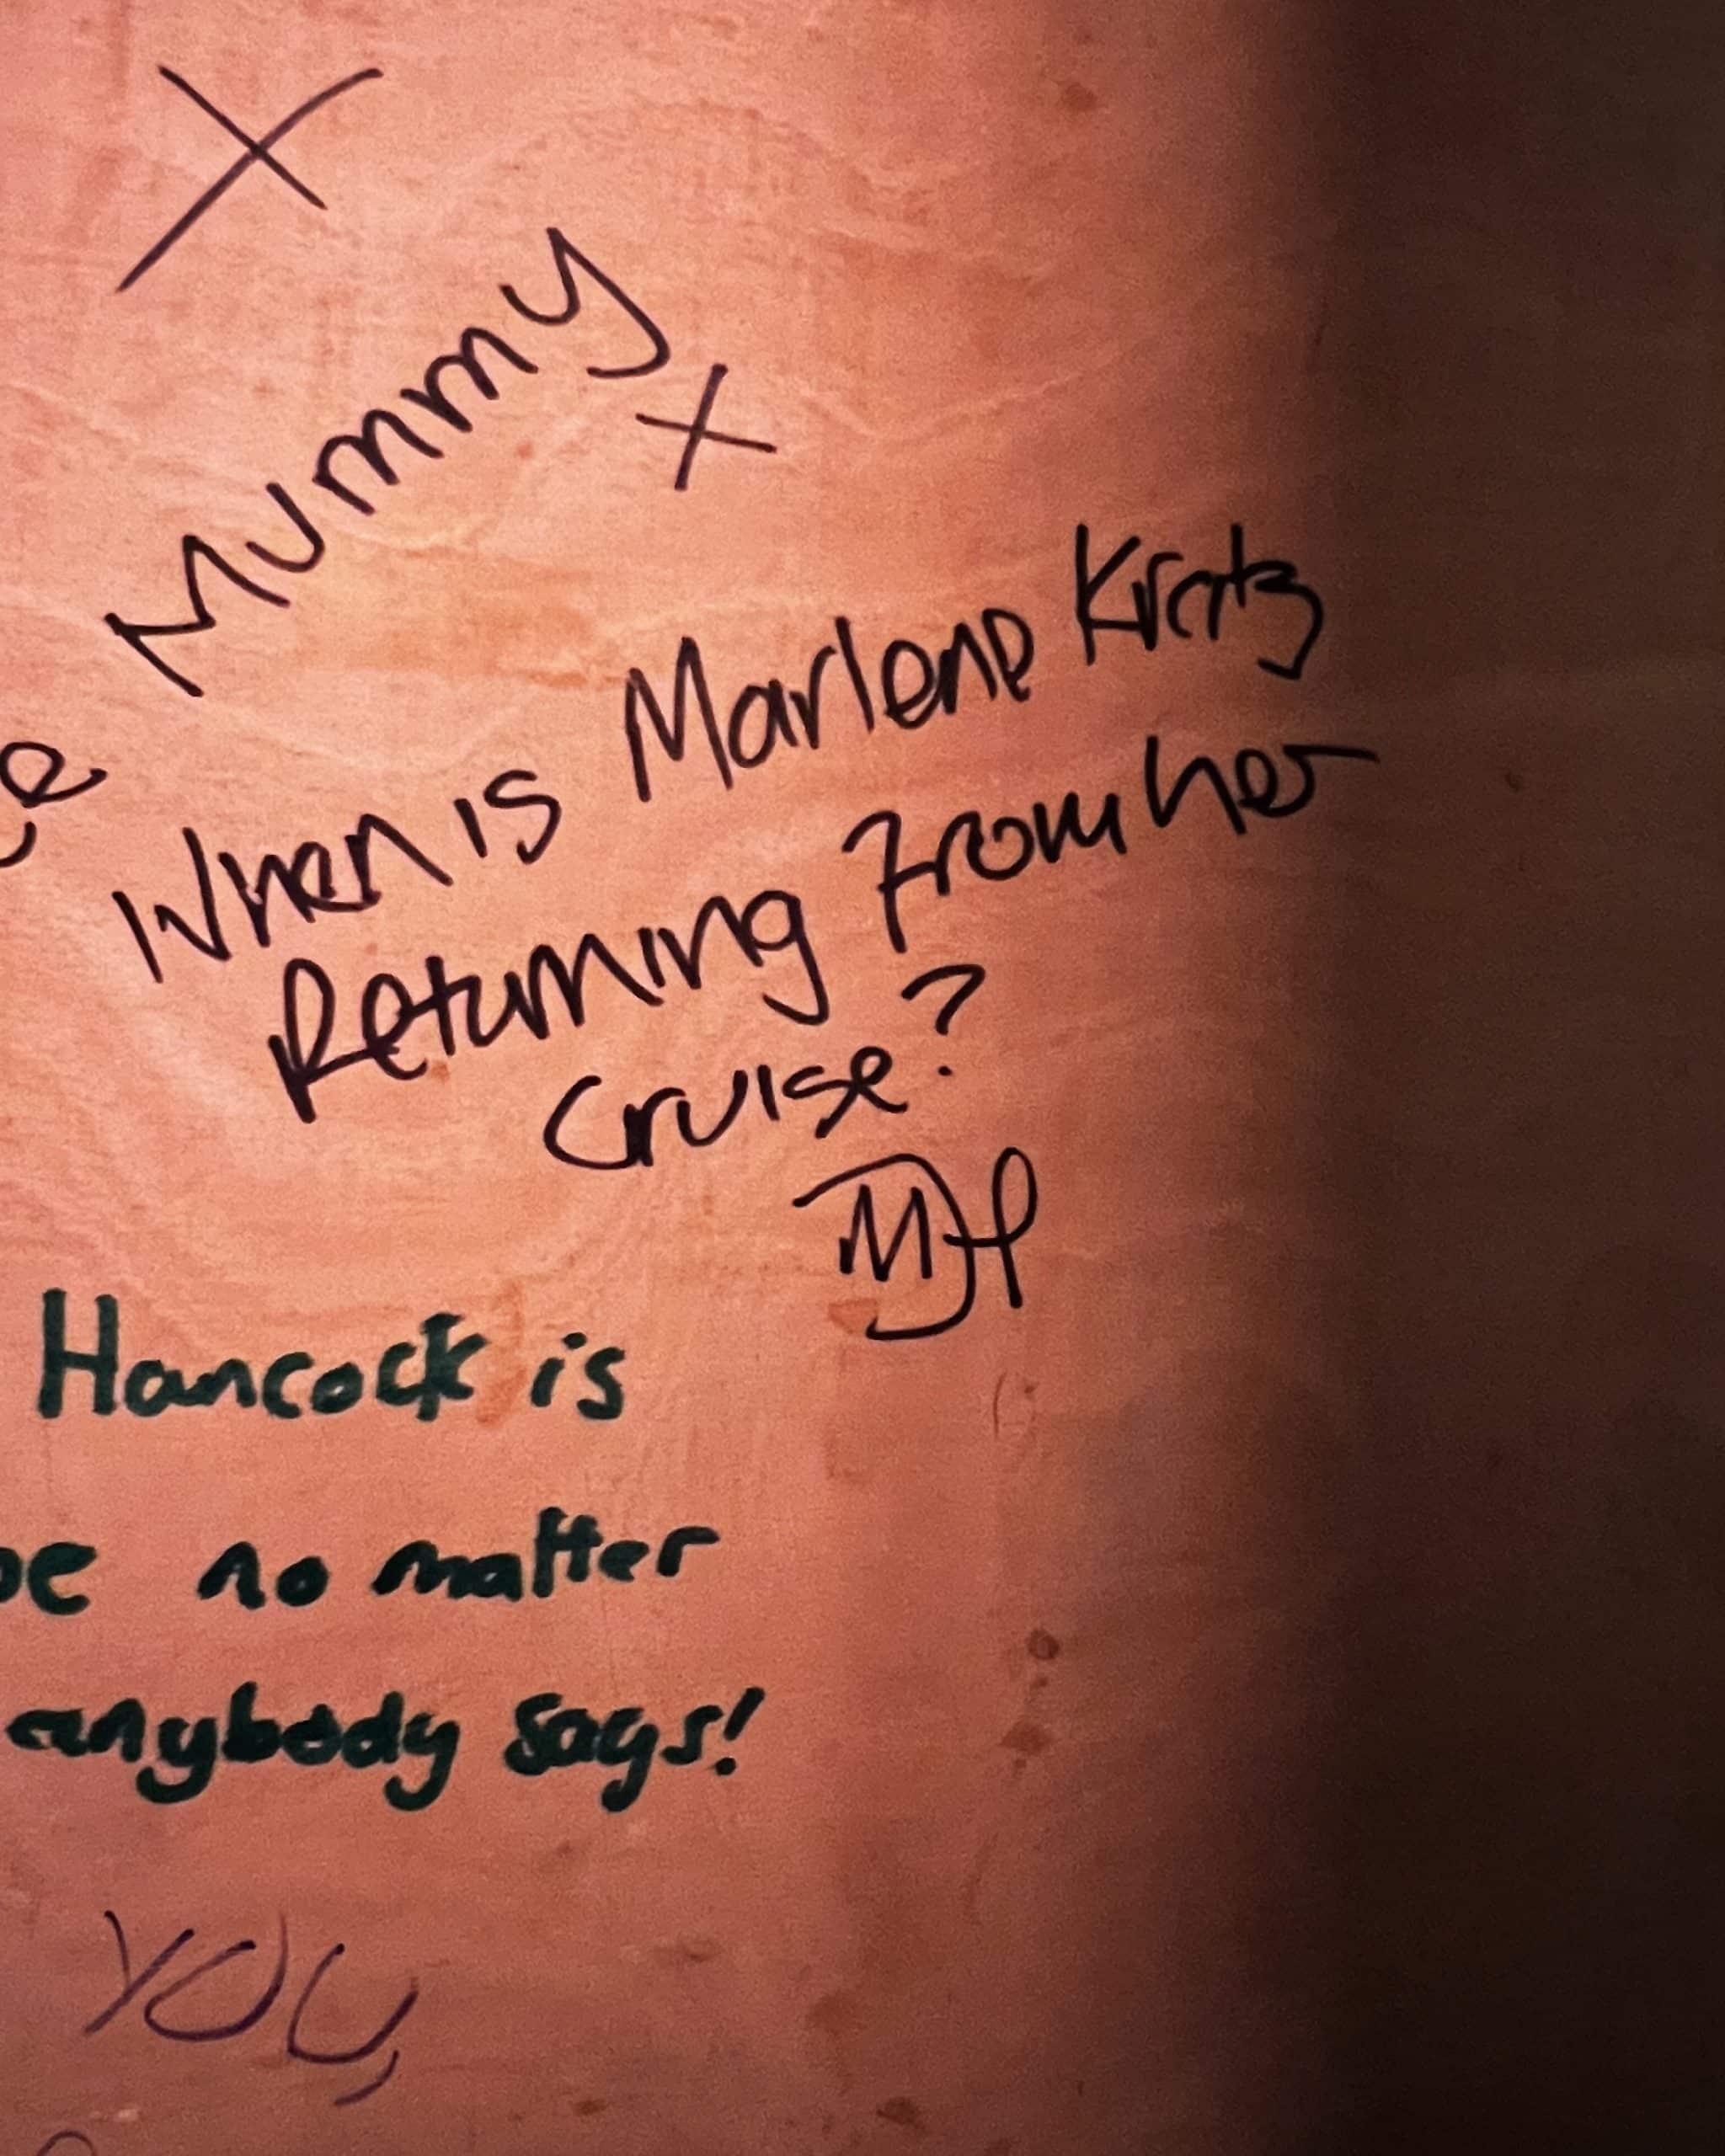 X
Mummy
x
When is Marlene Kratz
Returning from her
cruise?
Hancock is
no matter
anybody says!
YOU,